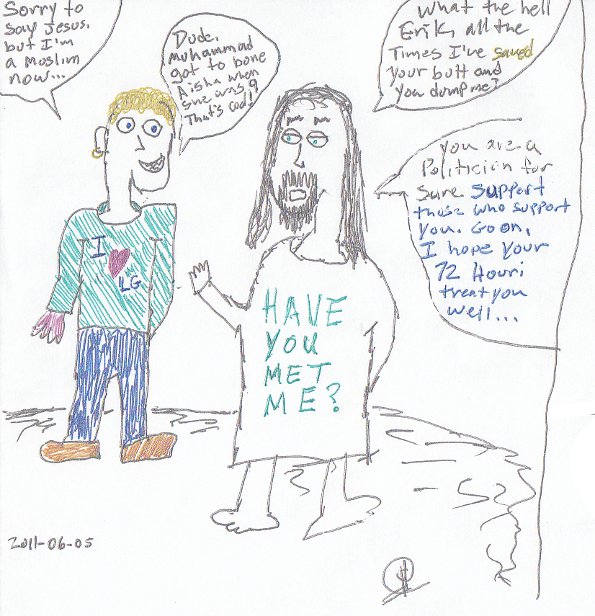 Sorry to
say Jesus,
but I'm
a Moslim
now...
Dude,
Muhammad
got to bone
Aisha when
she was 9
That's cool!
What the hell
Erik, all the
Times I've saved
your butt and
you dump me?
you are a
Politician for
sure support
those who support
you. Go on,
I hope your
72 Houri
treat you
well...
I
LG
HAVE
YOU
MET
ME?
2011-06-05